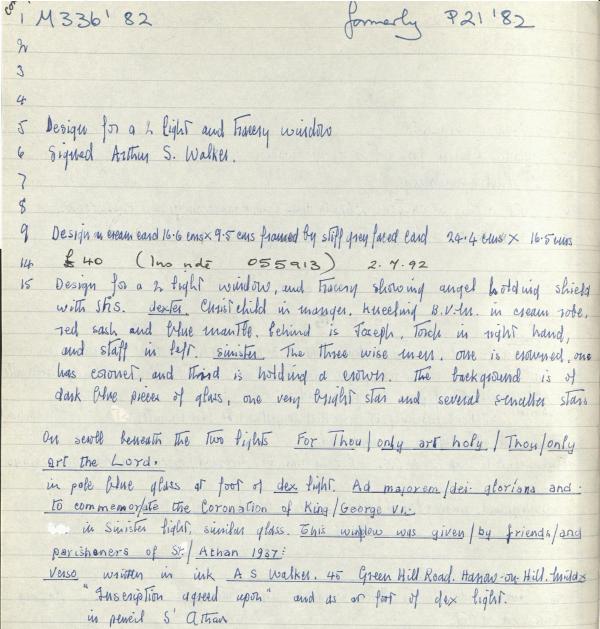 1 M336' 82 formerly P21 '82
2
3
4
5 Design for a 2 light and tracery window
6 Signed Arthur S. Walker.
7
8
9 Design on cream card 16.6 cms x 9.5 cms framed by stiff grey faced card 24.4 cms x 16.5 cms
14 £40 (Ins ndé 055913) 2.7.92
15 Design for a 2 light window, and tracery showing angel holding shield
with IHS. dexter. Christ child in manger, kneeling B.V.M. in cream robe,
red sash and blue mantle. Behind is Joseph, torch in right hand,
and staff in left. sinister. The three wise men. one is crowned, one
has coronet, and third is holding a crown. The background is of
dark blue pieces of glass, one very bright star and several smaller stars
On scroll beneath the two lights For Thou/only art holy/Thou/only
art the Lord.
in pale blue glass at foot of dex light. Ad majorem/dei gloriana and
to commemor/ate the Coronation of King/George VI.
in sinister light, similar glass. This window was given/by friends/and
parishoners of St/Athan 1937:
Verso written in ink A S Walker. 45 Green Hill Road. Harrow-on-Hill. Middx
"Inscription agreed upon" and as at foot of dex light.
in pencil S' Athan